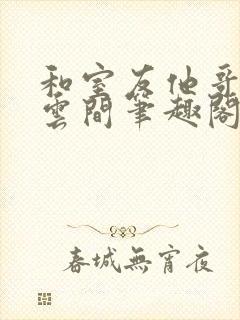 和室友他哥
雲間筆趣閣
春城無宵夜